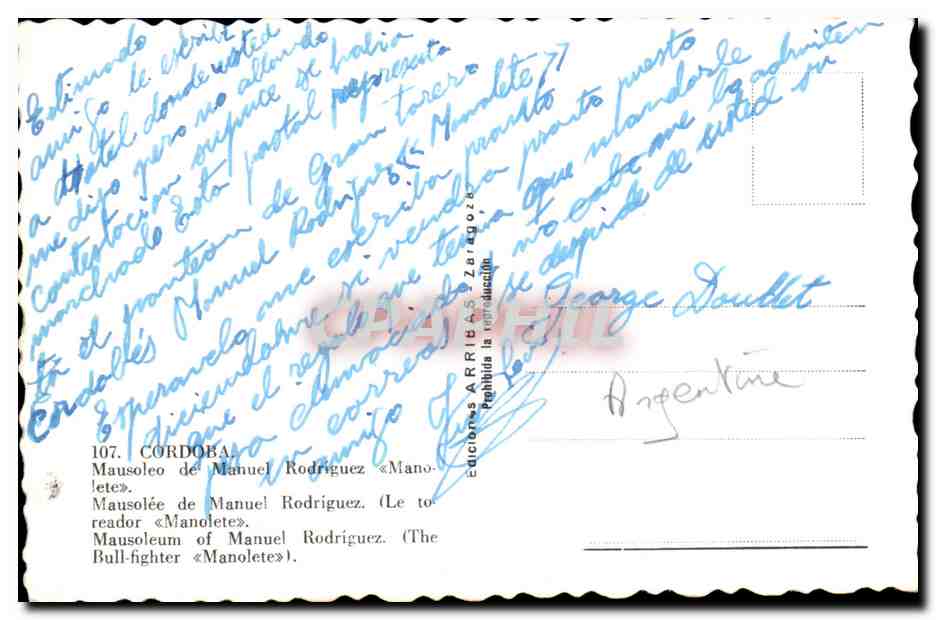 Estimado
amigo le escribi
a Hotel donde usted
me dijo pero no allando
contestacion supuce se habia
marchado Esta postal representa
ta el panteon de Gran torero
Cordobés Manuel Rodriguez "Manolete"
Esperando me escriba pronto
diciendome si vendra pronto puesto
que el regalo que tenia que mandarle
para no me la admiten
en correos se despide de usted su
amigo
George Doublet
Argentine
Ediciones ARRIBAS - Zaragoza
Prohibida la reproducción
CPAPHIL
107. CORDOBA.
Mausoleo de Manuel Rodríguez «Mano-
lete».
Mausolée de Manuel Rodríguez. (Le to-
reador «Manolete».
Mausoleum of Manuel Rodríguez. (The
Bull-fighter «Manolete»).